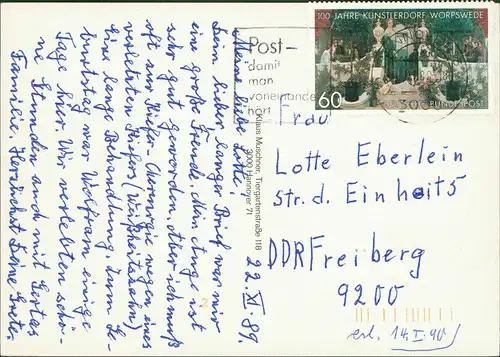 100 JAHRE KÜNSTLERDORF WORPSWEDE
60
DEUTSCHE BUNDESPOST
Post-
damit
man
voneinander
hört
Meine liebe Lotte!
Dein lieber langer Brief war mir
eine große Freude. Mein Auge ist
sehr gut geworden. Aber ich muß
oft zur Kiefer-Chirurgie wegen eines
vereiterten Kiefers (Weisheitszahn)
Eine lange Behandlung. Zum Ge-
burtstag war Wolfram einige
Tage hier. Wir verlebten schö-
ne Stunden auch mit Gertas
Familie. Herzlichst Deine Grete.
22. XI. 89.
Klaus Muschner, Tiergartenstraße 118
3000 Hannover 71
Frau
Lotte Eberlein
Str. d. Einheit 5
DDR Freiberg
9200
erl. 14. I. 90
2